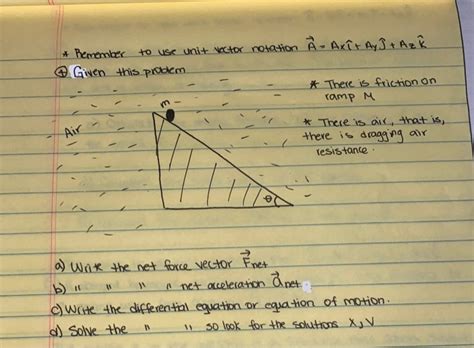 * Remember to use unit vector notation A⃗ = Axî + Ayĵ + Az k̂
④ Given this problem
* There is friction on
ramp M
m
* There is air, that is,
there is dragging air
resistance.
Air
θ
a) Write the net force vector F⃗net
b) " " " " net acceleration a⃗net
c) Write the differential equation or equation of motion.
d) Solve the " " so look for the solutions X, V